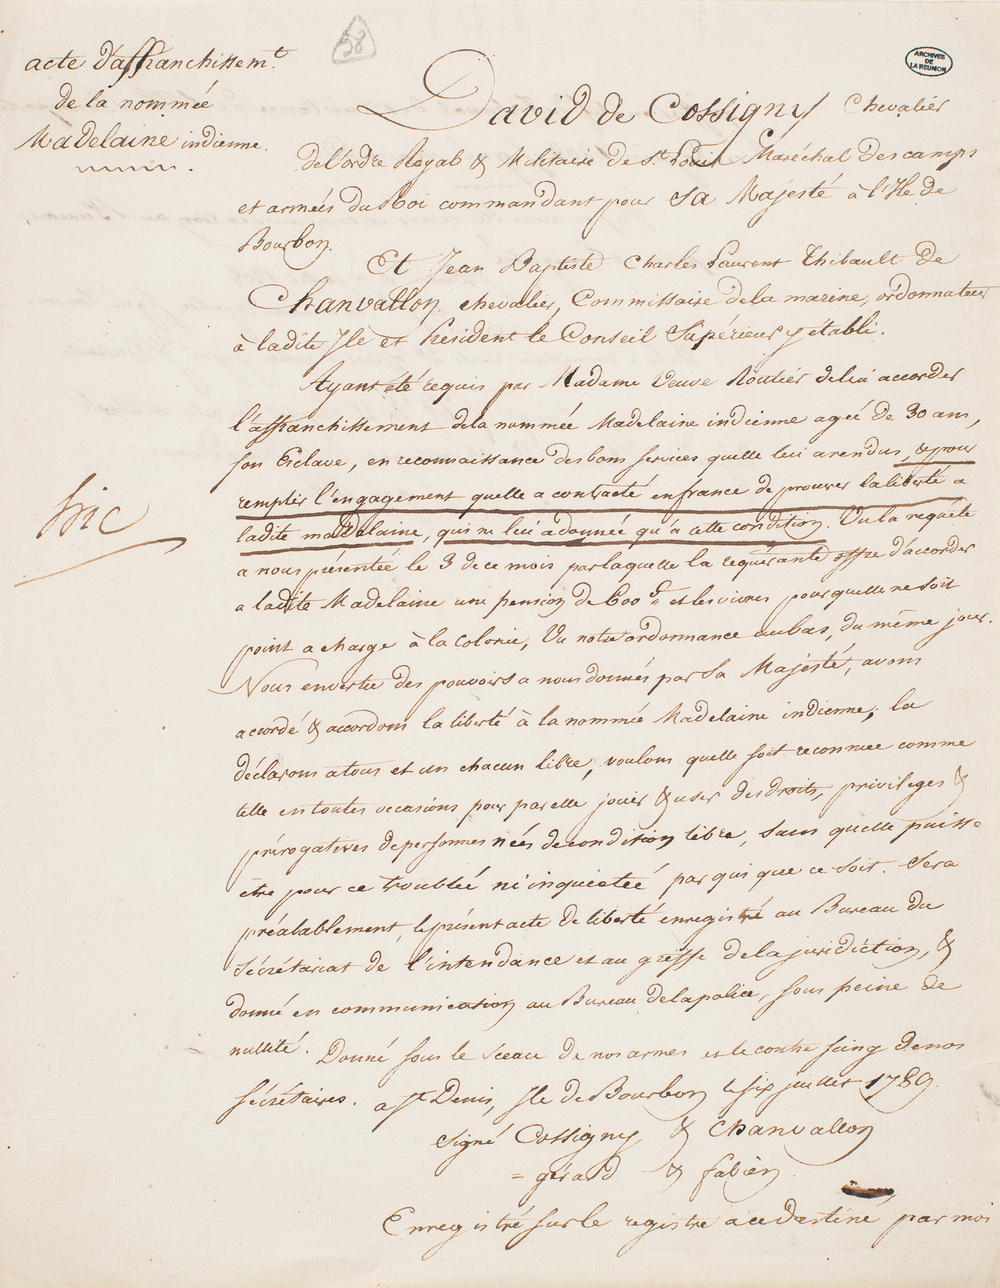 acte d'affranchissemt.
de la nommée
Madelaine indienne.
58
ARCHIVES
DE
LA RÉUNION
David de Cossigny Chevalier
de l'ordre Royal & Militaire de st. Louis Maréchal des camps
et armées du Roi commandant pour Sa Majesté à l'Ile de
Bourbon.
Et Jean Baptiste Charles Laurent Thibault de
Chanvallon chevalier, Commissaire de la marine, ordonnateur
à la dite Isle et Président le Conseil Supérieur y établi.
Ayant été requis par Madame Veuve Routier de lui accorder
l'affranchissement de la nommée Madelaine indienne ageé de 30 ans,
son Esclave, en reconnaissance des bons services quelle lui a rendus, et pour
remplir l'engagement quelle a contracté en france de prouver la liberté a
ladite madelaine, qui ne lui a donnée qu'à cette condition. Vu la requête
a nous présentée le 3 de ce mois par laquelle la requérante offre d'accorder
a ladite Madelaine une pension de 600 et les vivres pour quelle ne soit
point a charge à la colonie, Vu notre ordonnance au bas, du même jour.
Nous en vertu des pouvoirs a nous donnés par Sa Majesté, avons
accordé & accordons la liberté à la nommée Madelaine indienne, la
déclarons a tous et un chacun libre, voulons quelle soit reconnue comme
telle en toutes occasions pour par elle jouir & user des droits, privileges &
prérogatives de personnes nées de condition libre, sans quelle puisse
être pour ce troublée ni inquietée par qui que ce soit. Sera
préalablement, le présent acte de liberté enregistré au Bureau du
Sécrétariat de l'intendance et au greffe de la juridiction, &
donné en communication au Bureau de la police, sous peine de
nullité. Donné sous le sceau de nos armes et le contre seing de nos
sécrétaires. a St. Denis, Ile de Bourbon le six juillet 1789.
Signé Cossigny & Chanvallon
= gérard & fabien
Enregistré sur le registre a ce destiné par moi
sic